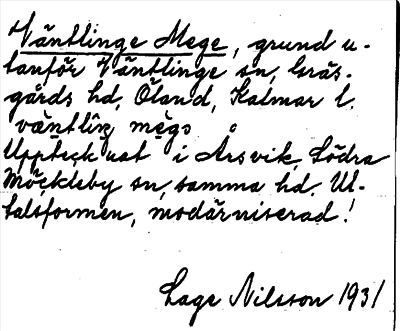 Väntlinge Mege, grund u-
tanför Väntlinge sn, Gräs-
gårds hd, Öland, Kalmar l.
væntlĭŋ mēgə
Uppteck nat i Årsvik, Södra
Möckleby sn, samma hd. Ut-
talsformen, modärniserad!
Lage Nilsson 1931